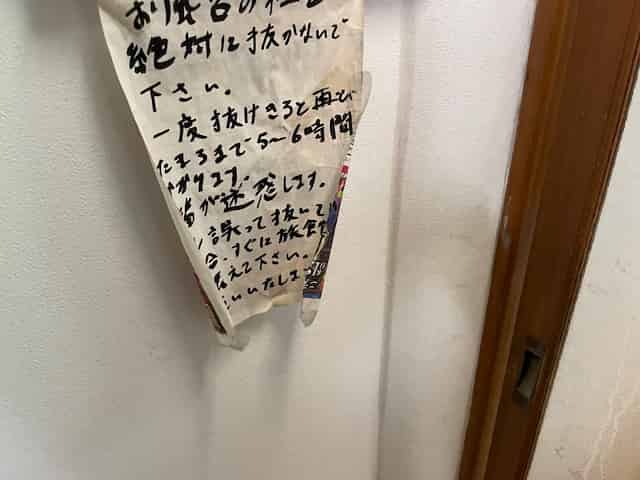 絶対に抜かないで
下さい。
一度抜けきると再び
たまるまで5〜6時間
かかります。
が迷惑します。
誤って抜いて
すぐに旅館
えて下さい。
いいたしま